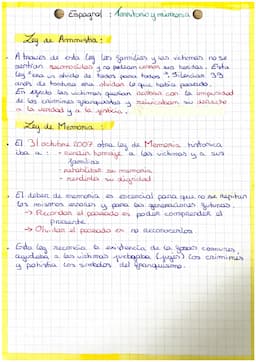 Espagnol : Territorio y memoria
Ley de Amnistía :
A traves de esta ley los familias y las victimas no se
sentían reconocidas y no podían cerrar sus heridas. Esta
ley "era un olvido de todos para todos". Silenciar 39
años de tortura era olvidar lo que había pasado.
En efecto las victimas querían acabar con la impunidad
de los crimines franquistas y reivindicaban su derecho
a la verdad y a la justicia.
Ley de Memoria :
El 31 octubre 2007 otra ley de Memoria historica
iba a : - rendir homaje a las victimas y a sus
familias
- rehabilitar su memoria
- rendirla su dignidad
El deber de memoria es escencial para que no se repitan
los mismos errores y para las generaciones futuras.
→ Recordar el pasado es poder comprender el
presente.
→ Olvidar el pasado es no reconocerlos
Esta ley reconcia la existencia de las fosas comunes,
ayudaba a las victimas juzgaba (juger) los crimines
y los simbolos del franquismo.